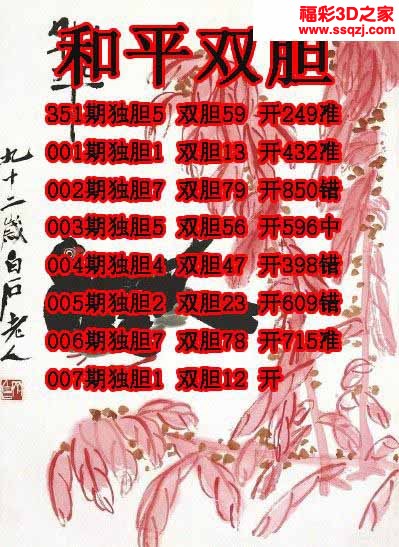 福彩3D之家
www.ssqzj.com
和平双胆
351期独胆5 双胆59 开249准
001期独胆1 双胆13 开432准
002期独胆7 双胆79 开850错
003期独胆5 双胆56 开596中
004期独胆4 双胆47 开398错
005期独胆2 双胆23 开609错
006期独胆7 双胆78 开715准
007期独胆1 双胆12 开
九十二岁白石老人